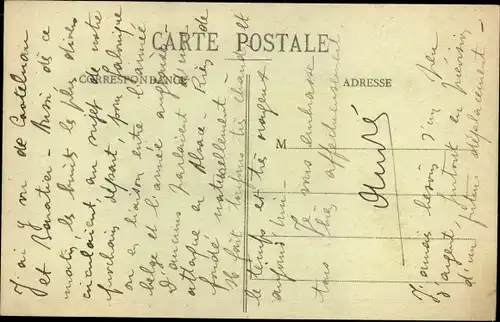 CARTE POSTALE
CORRESPONDANCE
ADRESSE
M
J'ai vu de Castelnau
et Banatier - Aussi dès ce
matin les bruits les plus divers
circulaient au sujet de notre
prochain départ, pour Salonique
ou en liaison entre l'armée
belge et l'armée anglaise -
D'aucuns parlaient d'une
attaque en Alsace - Rien de
fondé naturellement -
Il fait toujours très chaud et
le temps est très orageux
aujourd'hui -
Je vous embrasse
tous très affectueusement
André
J'aurais besoin d'un peu
d'argent, surtout en prévision
d'un futur déplacement.